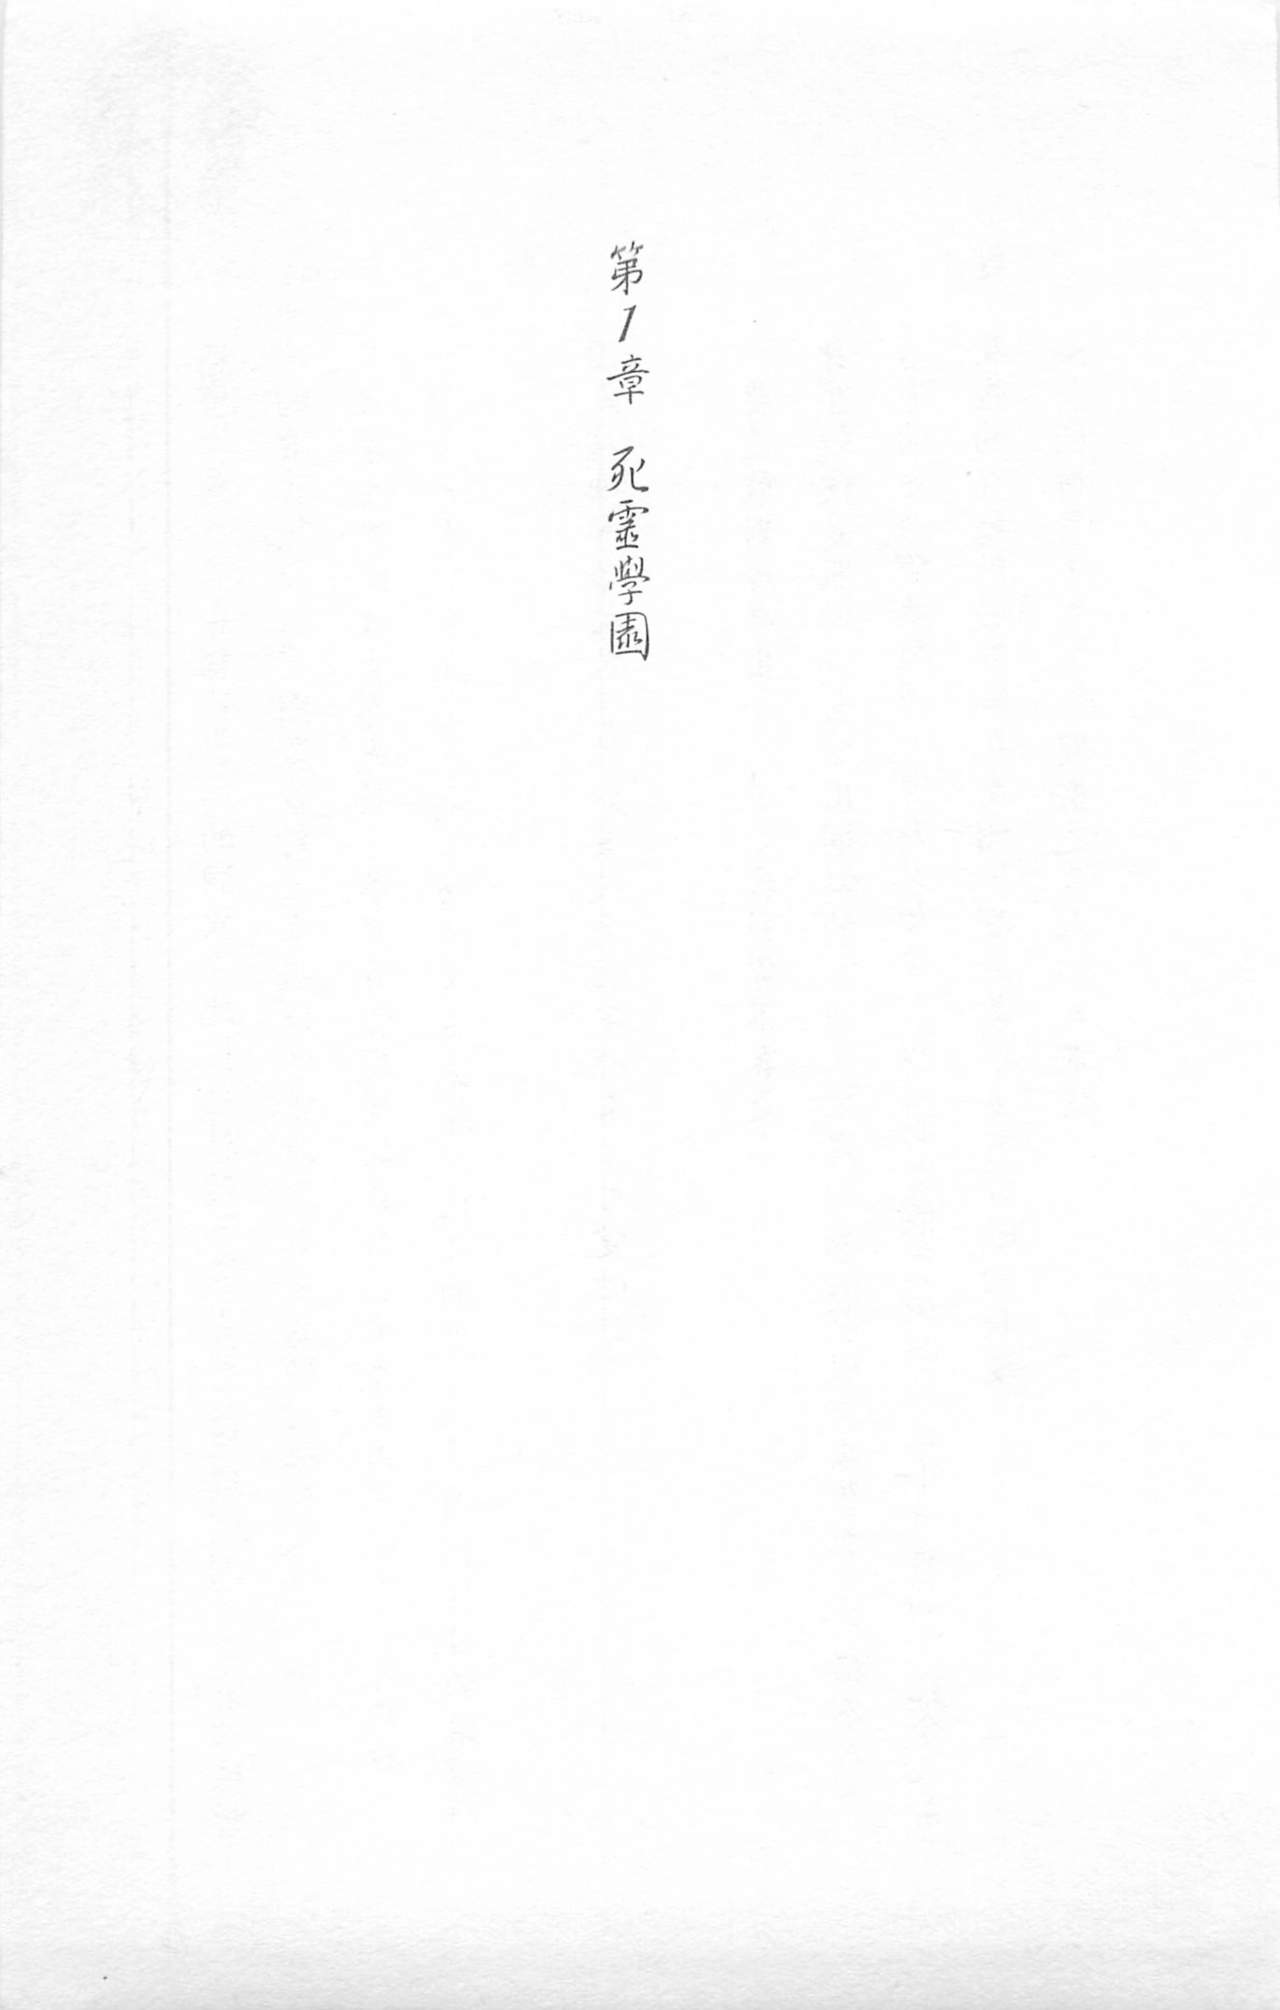 第1章 死靈學園